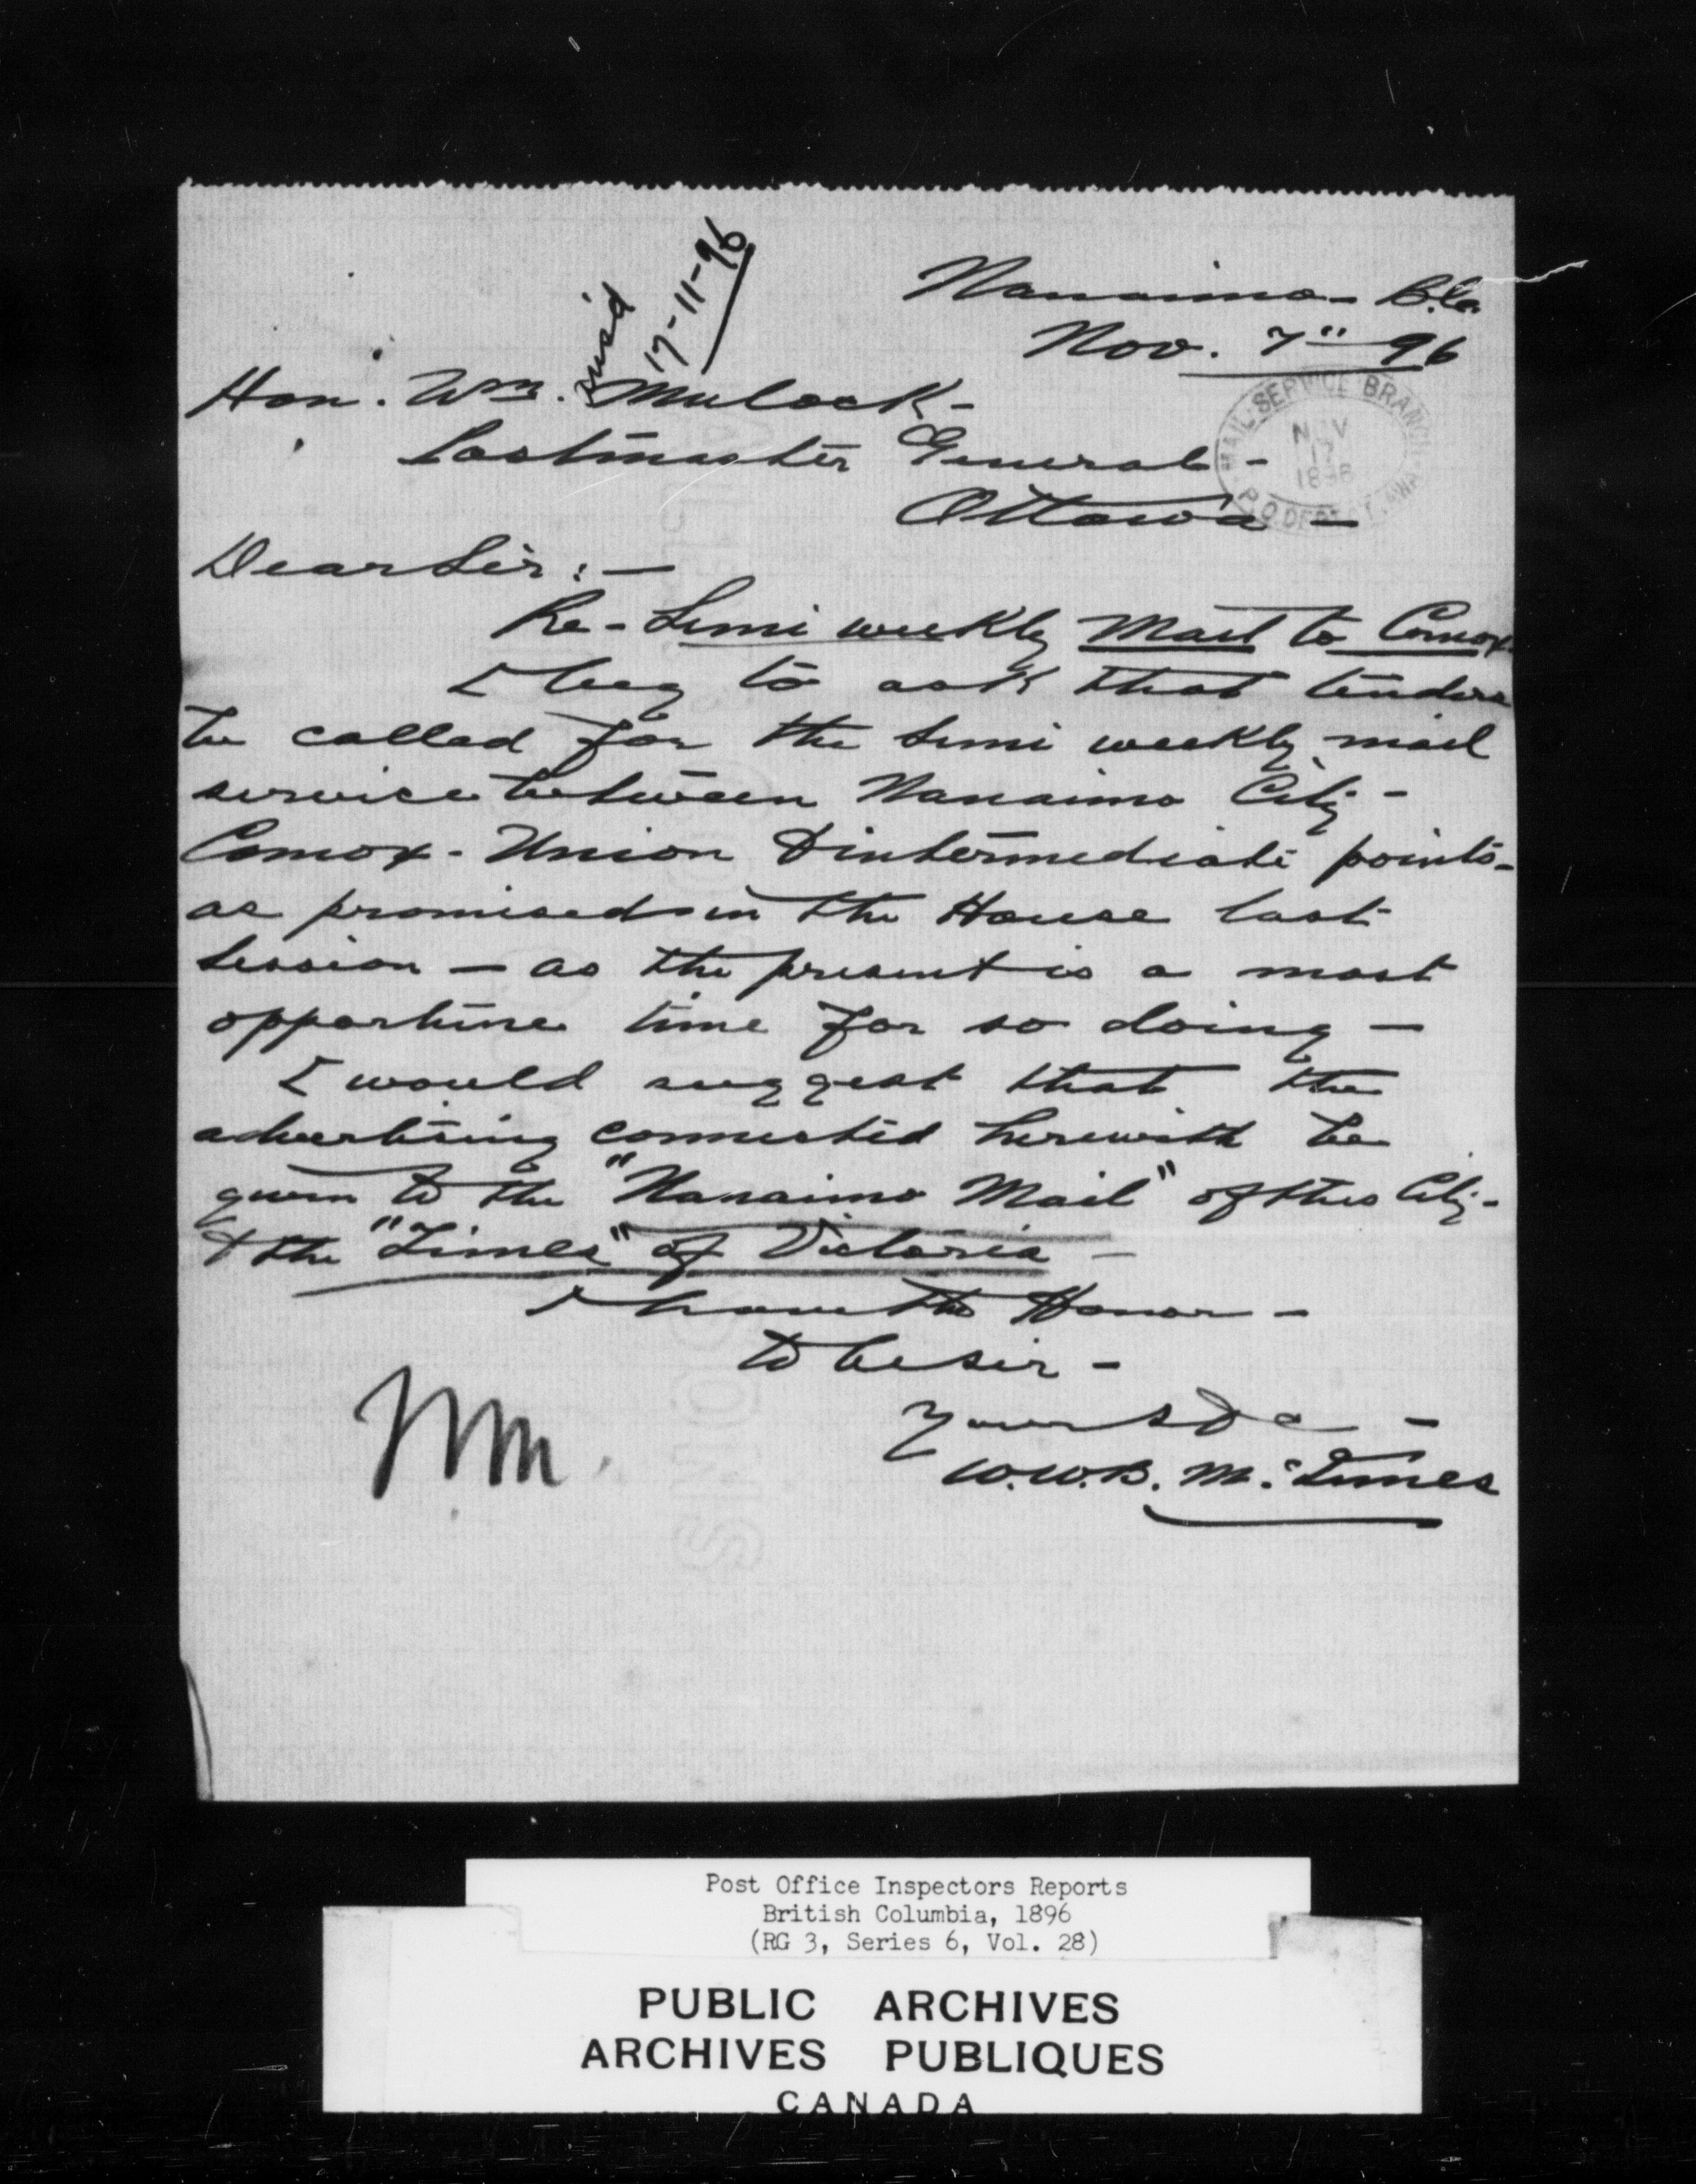 Nanaimo - B.C.
Nov. 7" 96
17-11-96
Hon. Wm. Mulock -
Postmaster General -
Ottawa -
MAIL SERVICE BRANCH
NOV
17
1896
P.O. DEPT
Dear Sir : -
Re - Semi weekly Mail to Comox
I beg to ask that tenders
be called for the semi weekly mail
service between Nanaimo City -
Comox - Union & intermediate points -
as promised in the House last
Session - as the present is a most
opportune time for so doing -
I would suggest that the
advertising connected herewith be
given to the "Nanaimo Mail" of this City -
& the "Times" of Victoria -
I have the Honor -
to be sir -
Yours &c -
W.W.B. McInnes
WM.
Post Office Inspectors Reports
British Columbia, 1896
(RG 3, Series 6, Vol. 28)
PUBLIC ARCHIVES
ARCHIVES PUBLIQUES
CANADA